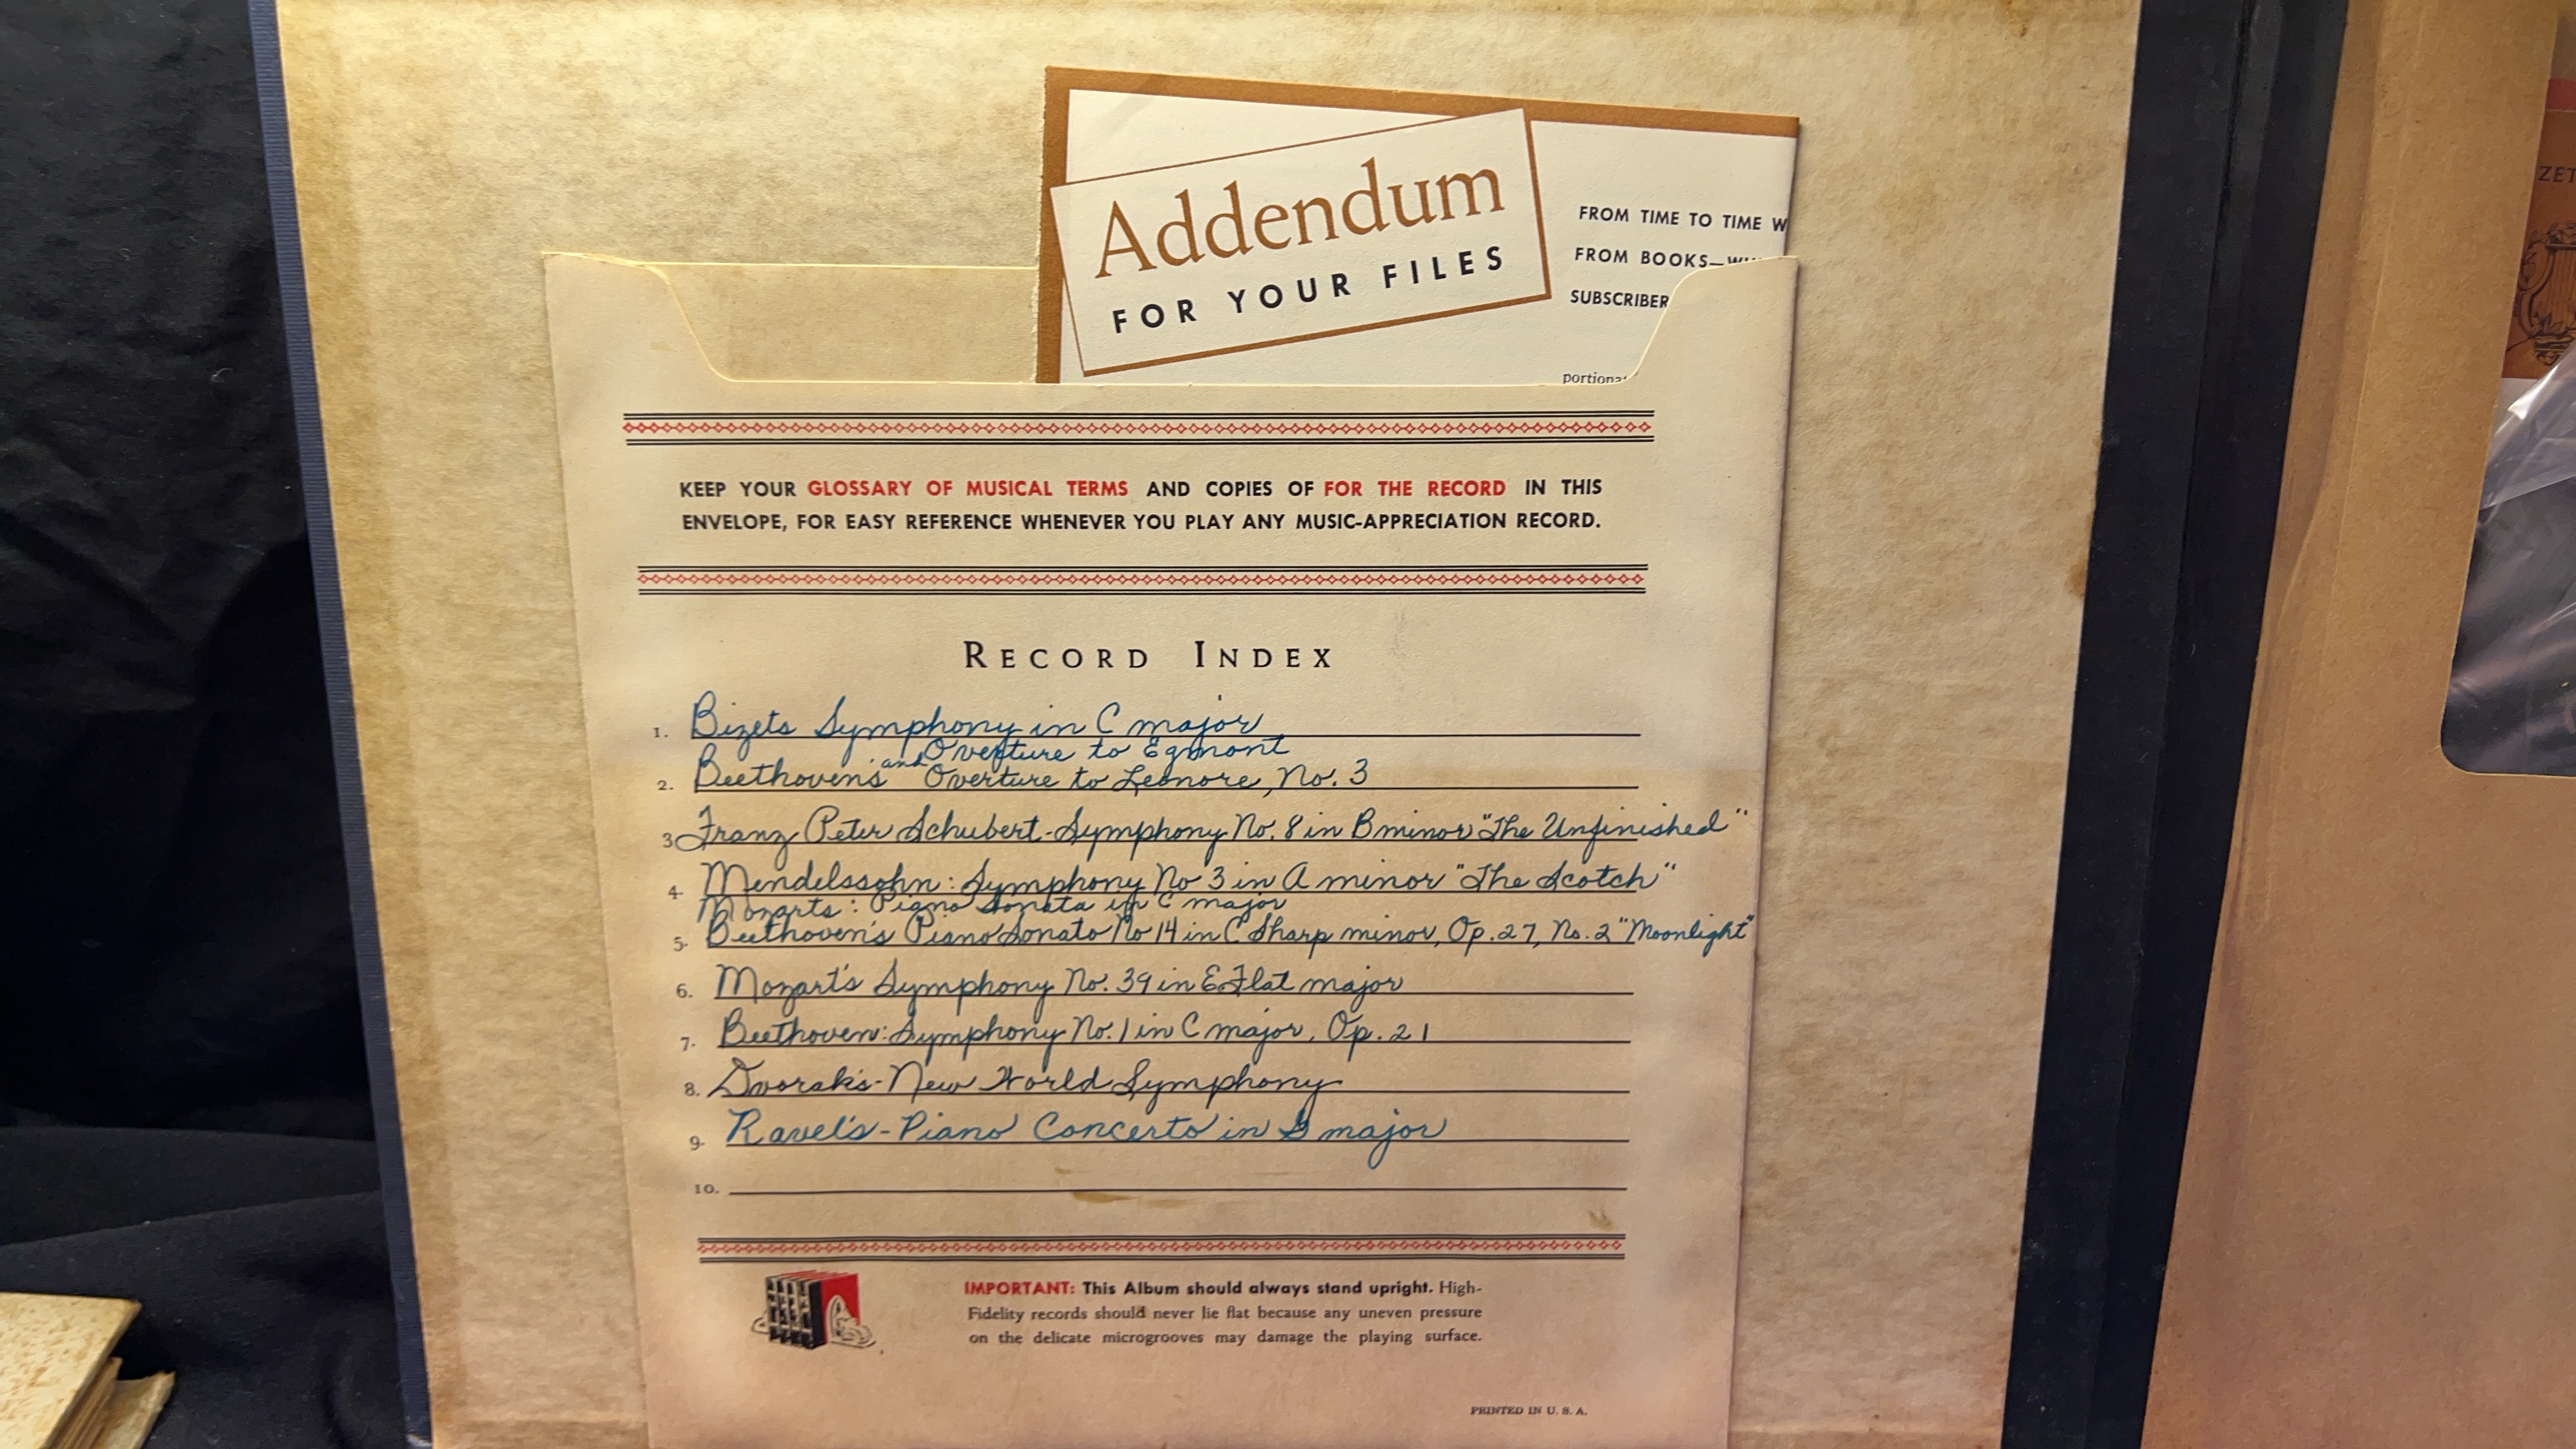 Addendum
FOR YOUR FILES
FROM TIME TO TIME W
FROM BOOKS—
SUBSCRIBER
portiona
ZET
KEEP YOUR GLOSSARY OF MUSICAL TERMS AND COPIES OF FOR THE RECORD IN THIS
ENVELOPE, FOR EASY REFERENCE WHENEVER YOU PLAY ANY MUSIC-APPRECIATION RECORD.
RECORD INDEX
1. Bizets Symphony in C major
and Overture to Egmont
2. Beethoven's Overture to Leonore, No. 3
3 Franz Peter Schubert-Symphony No. 8 in B minor "The Unfinished"
4. Mendelssohn: Symphony No 3 in A minor "The Scotch"
Mozarts: Piano Sonata in C major
5. Beethoven's Piano Sonato No 14 in C Sharp minor, Op. 27, No. 2 "Moonlight"
6. Mozart's Symphony No. 39 in E Flat major
7. Beethoven: Symphony No. 1 in C major, Op. 21
8. Dvorak's-New World Symphony
9. Ravel's-Piano Concerto in G major
10.
IMPORTANT: This Album should always stand upright. High-
Fidelity records should never lie flat because any uneven pressure
on the delicate microgrooves may damage the playing surface.
PRINTED IN U. S. A.